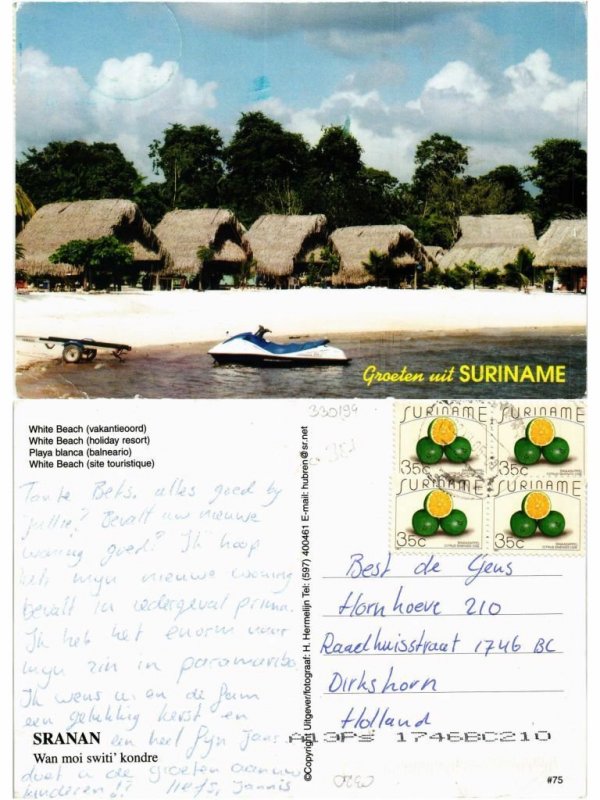 Groeten uit SURINAME
White Beach (vakantieoord)
White Beach (holiday resort)
Playa blanca (balneario)
White Beach (site touristique)
330199
Tante Bets. alles goed by
jullie? Bevalt uw nieuwe
woning goed? Ik hoop
het. mijn nieuwe woning
bevalt in iedergeval prima.
Ik heb het enorm naar
mijn zin in paramaribo
Ik wens u en de fam
een gelukkig kerst en
een heel fijn jaar.
doet u de groeten aan uw
kinderen!! liefs, Jannis
SRANAN
Wan moi switi' kondre
©Copyright Uitgever/fotograaf: H. Hermelijn Tel: (597) 400461 E-mail: hubren@sr.net
SURINAME
35c
SURINAME
35c
SURINAME
35c
SURINAME
35c
Best de Geus
Hornhoeve 210
Raadhuisstraat 1746 BC
Dirkshorn
Holland
1746BC210
#75